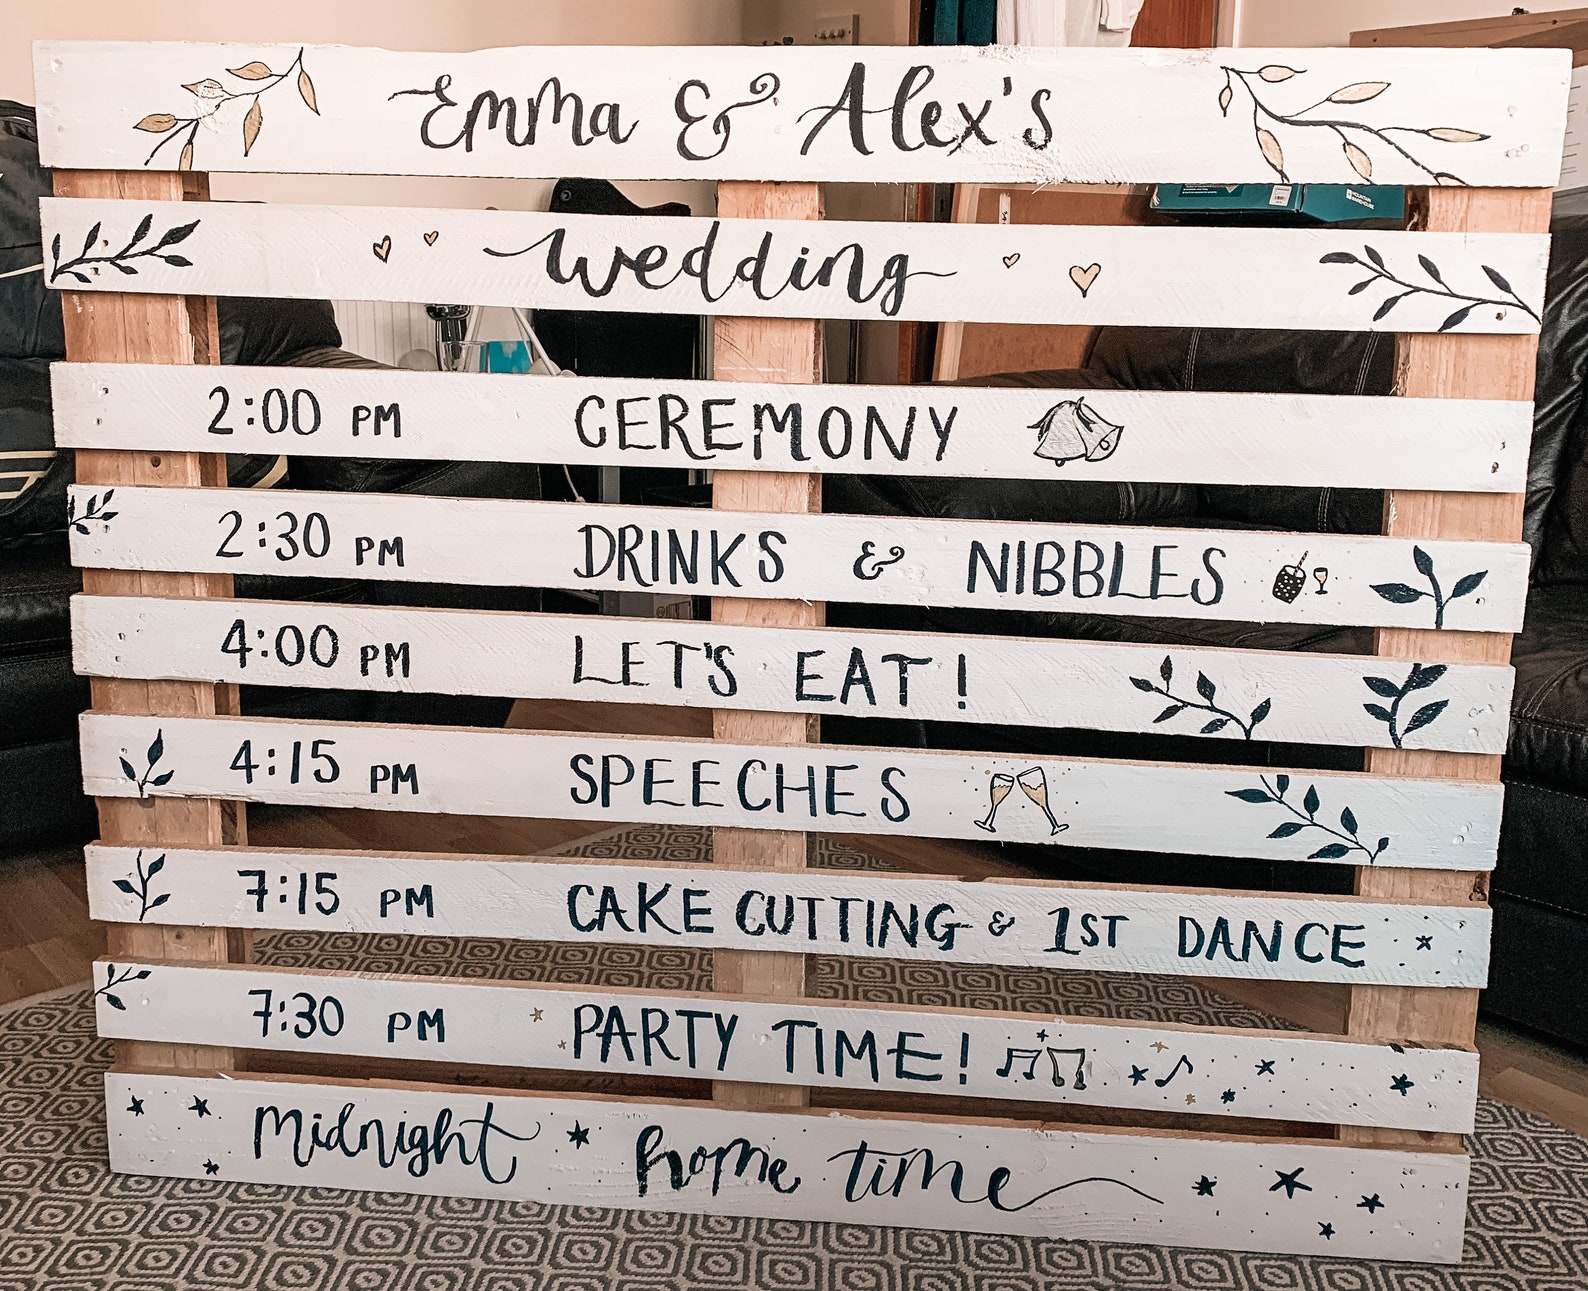 Emma & Alex's
wedding
2:00 PM CEREMONY
2:30 PM DRINKS & NIBBLES
4:00 PM LET'S EAT!
4:15 PM SPEECHES
7:15 PM CAKE CUTTING & 1ST DANCE
7:30 PM PARTY TIME!
Midnight home time